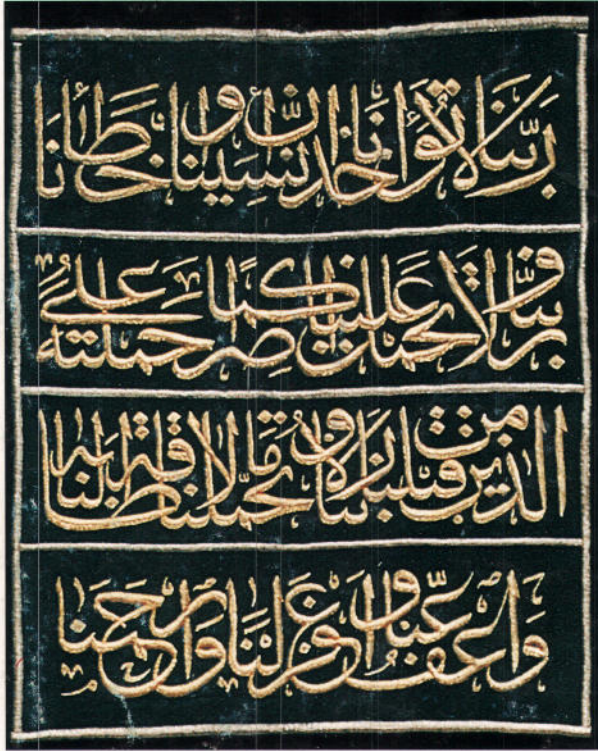 رَبَّنَا لَا تُؤَاخِذْنَا إِنْ نَسِينَا أَوْ أَخْطَأْنَا
رَبَّنَا وَلَا تَحْمِلْ عَلَيْنَا إِصْرًا كَمَا حَمَلْتَهُ عَلَى
الَّذِينَ مِنْ قَبْلِنَا رَبَّنَا وَلَا تُحَمِّلْنَا مَا لَا طَاقَةَ لَنَا بِهِ
وَاعْفُ عَنَّا وَاغْفِرْ لَنَا وَارْحَمْنَا